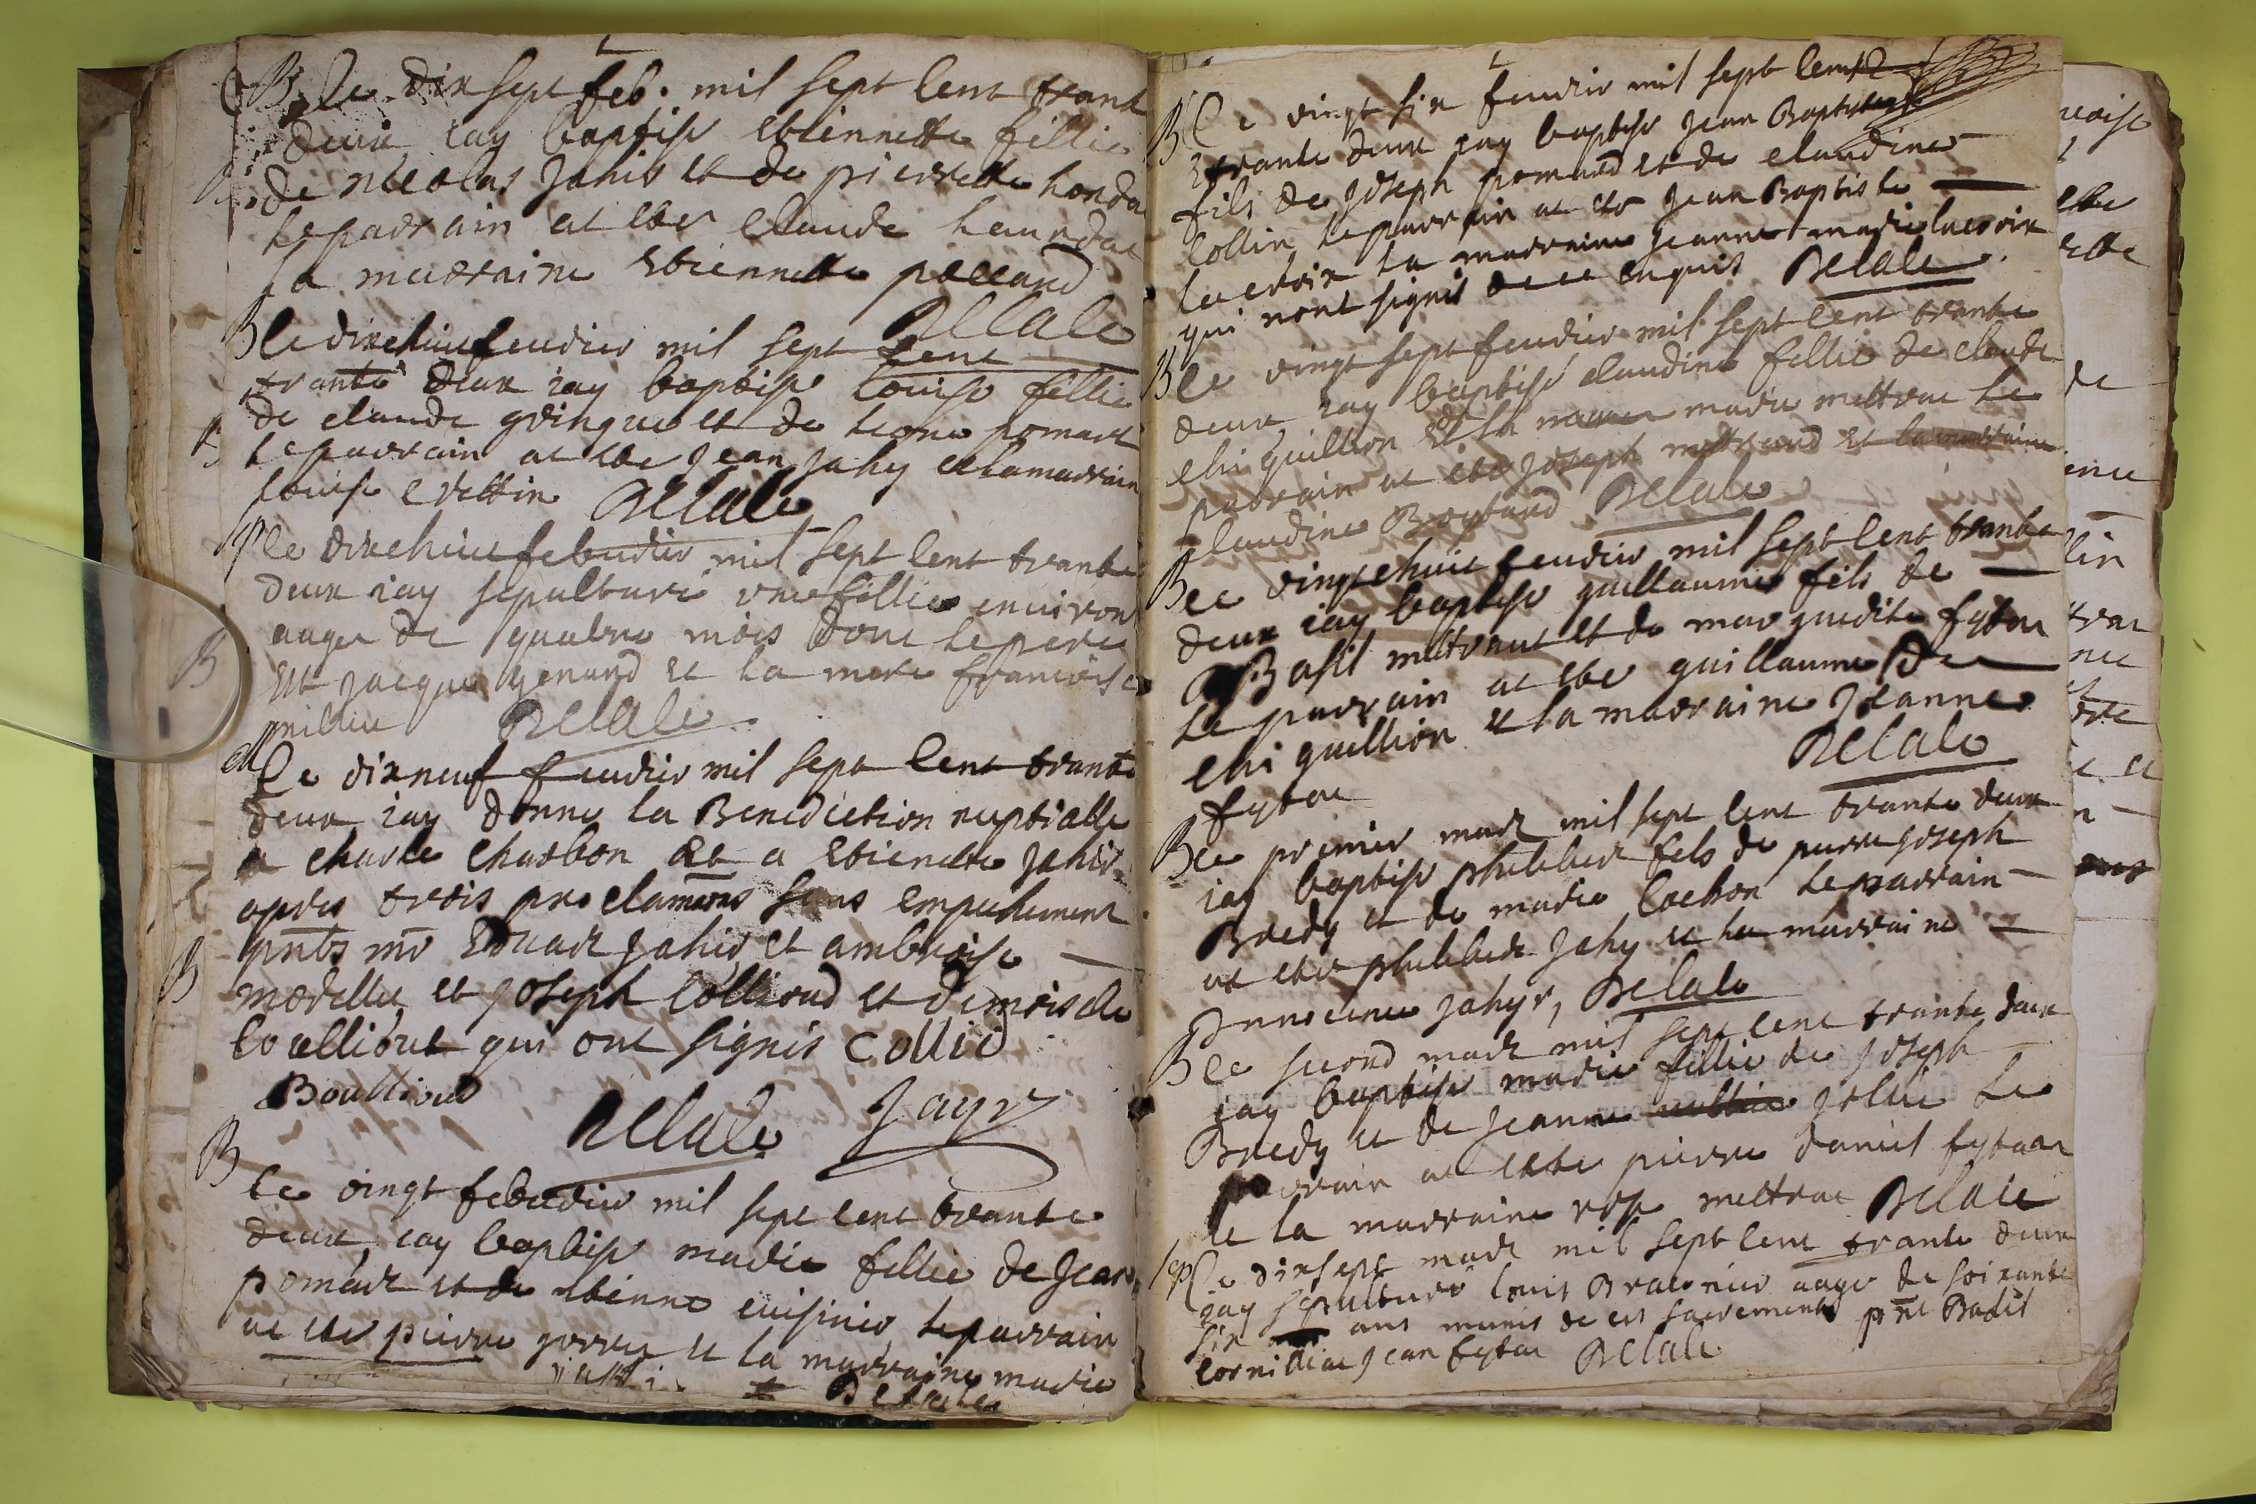 B Le dix sept feb. mil sept cent trant
deux iay baptise etiennette fillie
de nicolas Jahir et de pierrette honda
le parrain at ete claude
la marraine etiennette poccard
Relale
B le dixehuit feuvrier mil sept cent
trante deux iay baptise Louise fillie
de claude gringue et de Leone pomart
le parrain at ete Jean Jahy et la marrain
Louise crettin Relale
Sp le dixehuit februrier mil sept cent trante
deux iay sepulturé une fillie environ
aagee de quatre mois donc le pere
est Jacque genand et la mere francoise
millie Relale
M Le dixneuf feuvrier mil sept cent trante
deux iay donne la Benediction nuptialle
a charle charbon et a etiennette Jahir
apres trois proclamaons sans empechement
pnts mr Eduard Jahir et ambroise
morellie et Joseph Collioud et demoiselle
coullioud qui ont signes Collio
Boullioud
Relale Jayr
B Le vingt februrier mil sept cent trante
deux, iay baptise marie fillie de Jean
pomart et de etienne cuisinier le parrain
at ete pierre gorre et la marraine marie
Relale
B Le vingt six feuvrier mil sept cent
trante deux iay baptise Jean Baptiste
fils de Joseph pomard et de claudine
Collin le parrain at ete Jean Baptiste
lacroix la marraine Jeanne marie lacroix
qui nont signes de ce enquis Relale
B le vingt sept feuvrier mil sept cent trante
deux iay baptise claudine fillie de claude
chi quillion et la marie mettrau le
parrain at ete Joseph mettraud et la marraine
claudine Boytaud Relale
B Le vingtehuit feuvrier mil sept cent trante
deux iay baptise guillaume fils de
Basil mettraut et de margueritte fytau
Le parrain at ete guillaume de
chi quillion et la marraine Jeanne
fytau Relale
B Le premier mars mil sept cent trante deux
iay baptise philibert fils de pierre Joseph
Bredy et de marie cochon le parrain
at ete philibert Jahy et la marraine
Innocence Jahyr, Relale
B Le second mars mil sept cent trante deux
iay baptise marie fillie de Joseph
Bredy et de Jeanne Jollie Le
parrain at ette pierre daniel fytaau
et la marraine rose mettrau Relale
Sp Le dixsept mars mil sept cent trante deux
iay sepulturé Louis Braconier aage de soixante
six ans munis de ces sacrements pnt Basil
cornillia Jean fytau Relale